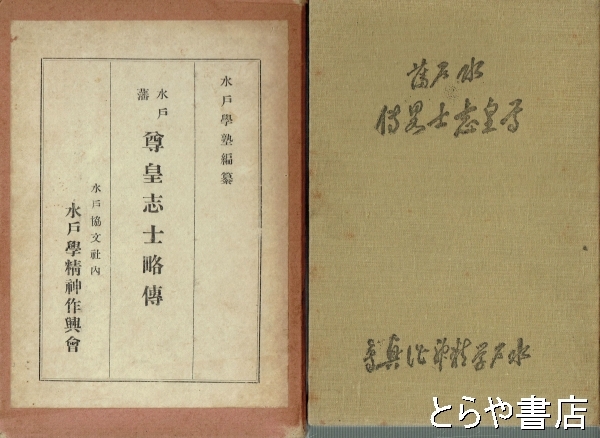 水戶學塾編纂
水戶
藩
尊皇志士略傳
水戶協文社內
水戶學精神作興會
水戶藩
尊皇志士畧傳
水戶学精神作興會
とらや書店